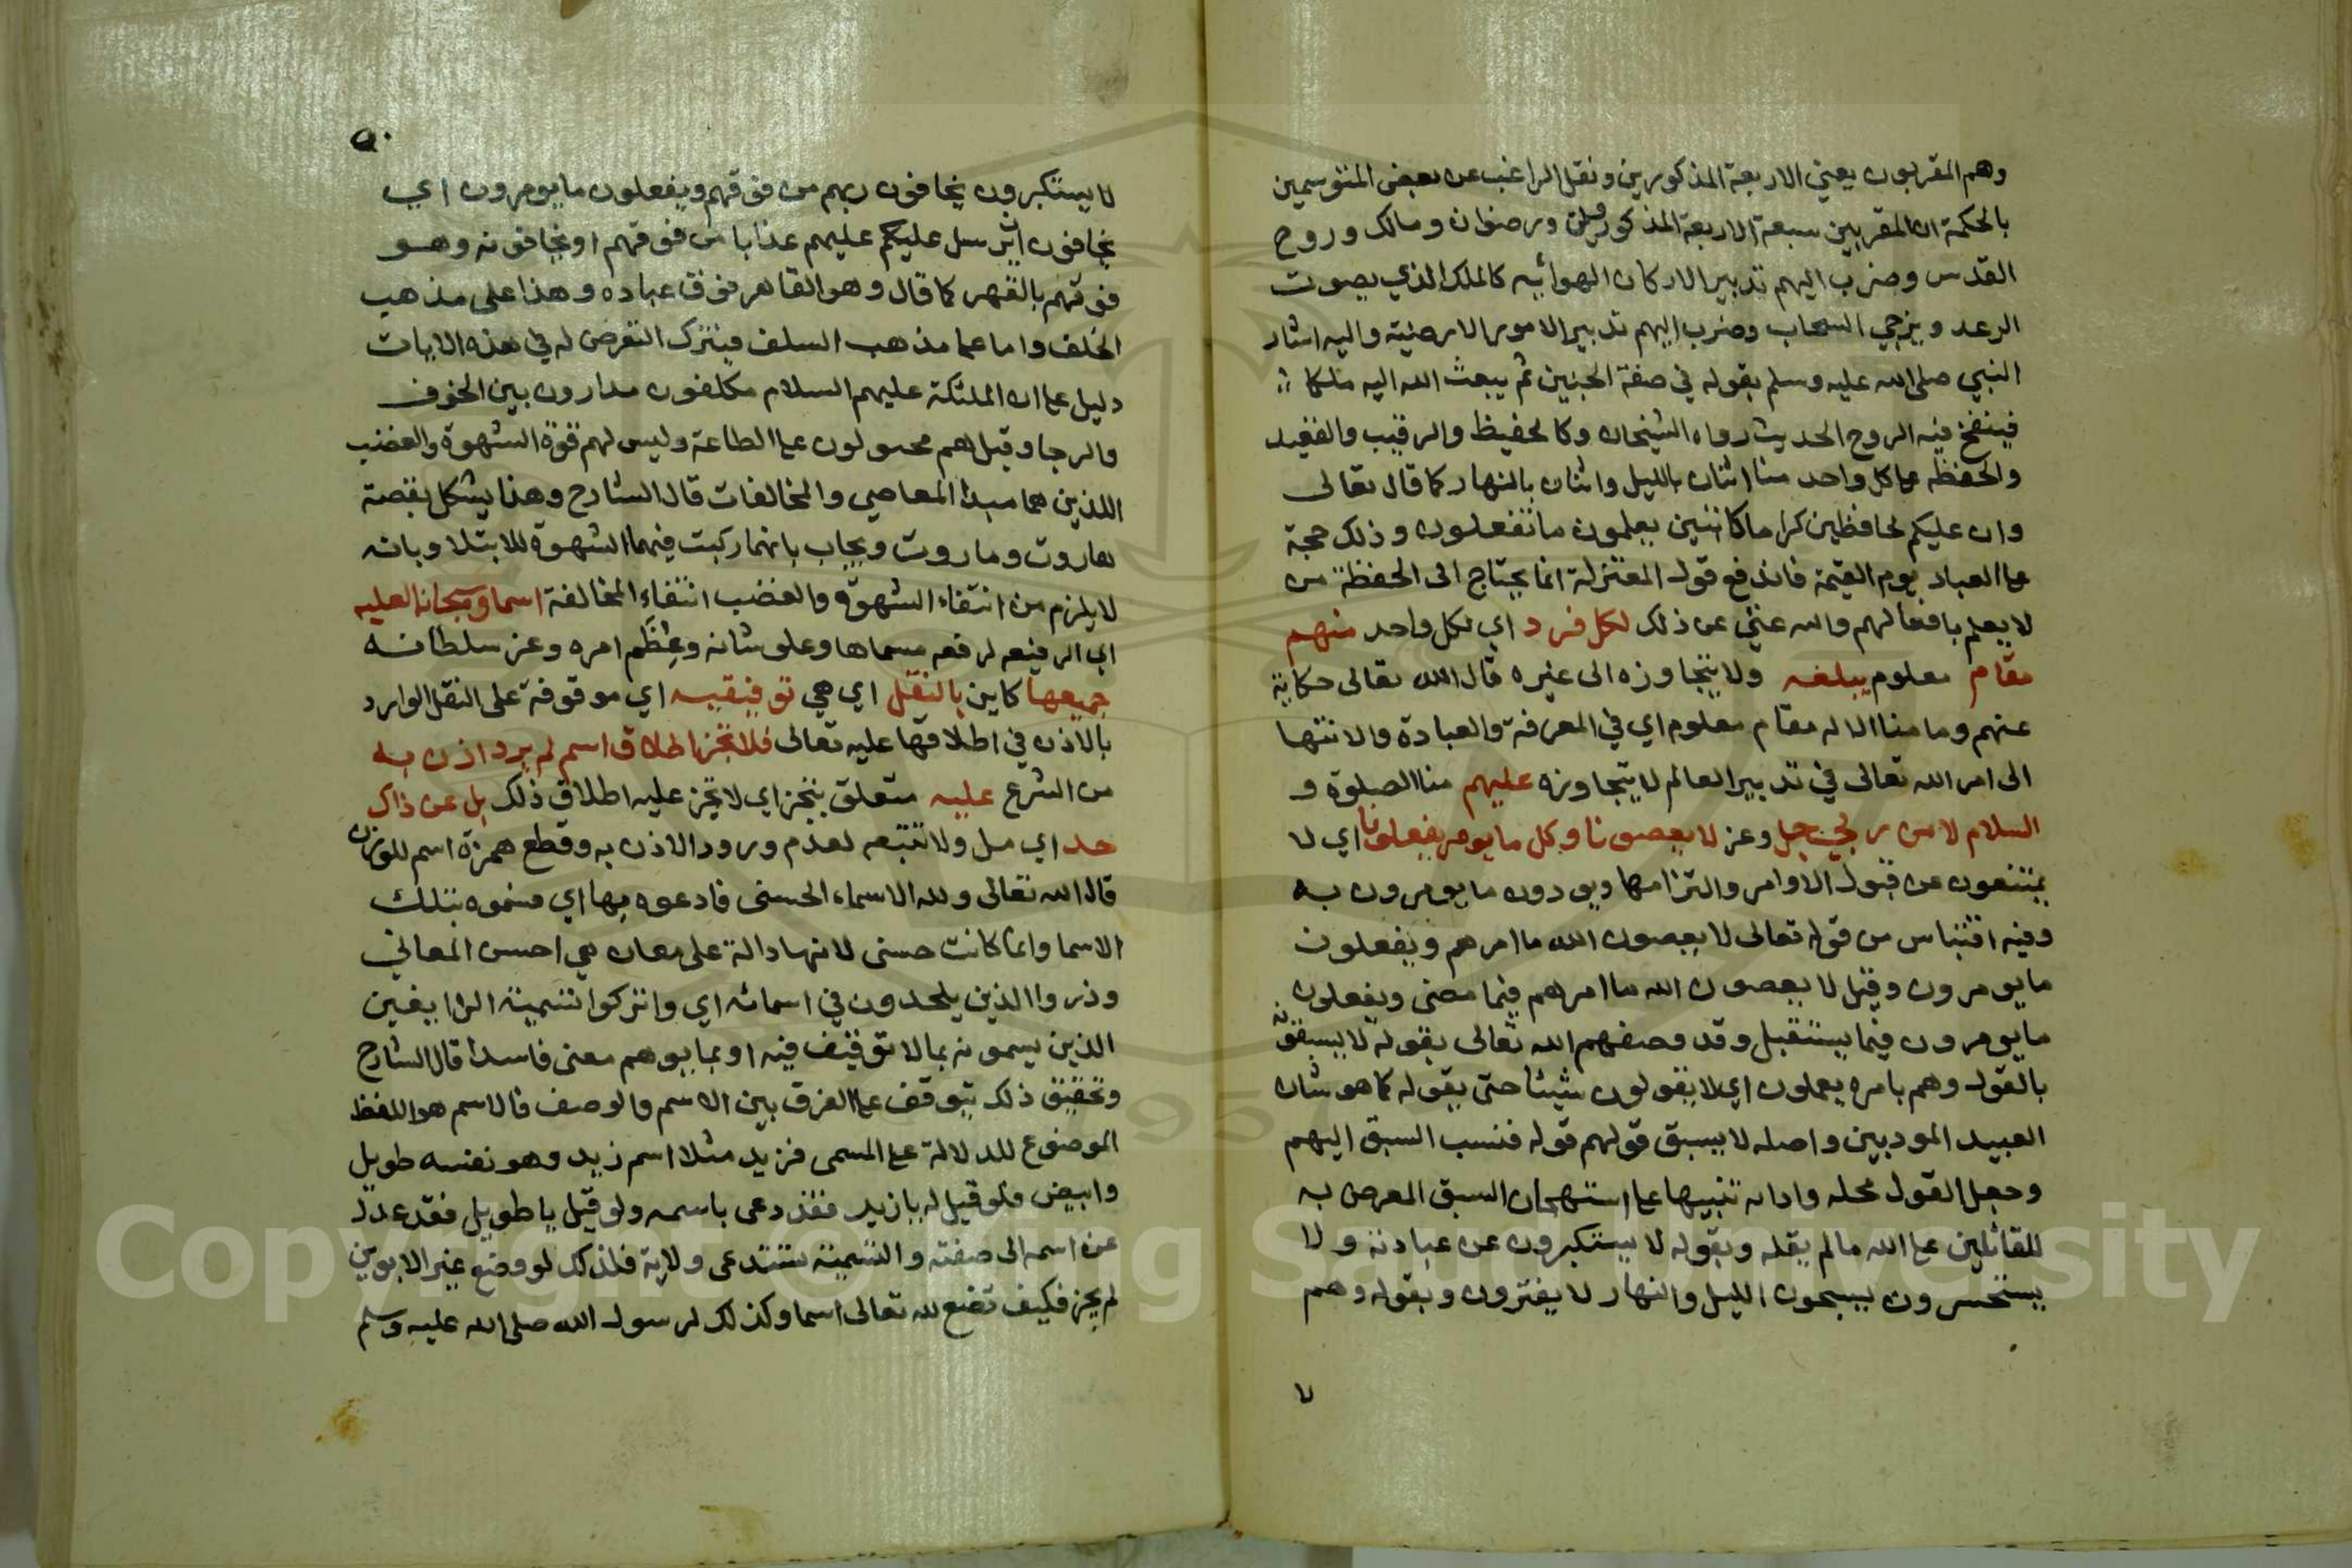 وهم المقربون يعني الاربعة المذكورين ونقل الراغب عن بعض المتوسمين
بالحكمة ان المقربين سبعة الاربعة المذكورين ورضوان ومالك وروح
القدس وضرب اليهم تدبير الاركان الهوائيه كالملك الذي يصوت
الرعد ويزجي السحاب وضرب اليهم تدبير الامور الارضية واليه اشار
النبي صلى الله عليه وسلم بقوله في صفة الجنين ثم يبعث الله اليه ملكا
فينفخ فيه الروح الحديث رواه الشيخان وكالحفيظ والرقيب والقعيد
والحفظه على كل واحد منا اثنان بالليل واثنان بالنهار كما قال تعالى
وان عليكم لحافظين كراما كاتبين يعلمون ما تفعلون وذلك حجة
على العباد يوم القيمة فاندفع قول المعتزلة انما يحتاج الى الحفظة من
لا يعلم بافعالهم والله غني عن ذلك لكل فرد اي لكل واحد منهم
مقام معلوم يبلغه ولا يتجاوزه الى غيره قال الله تعالى حكاية
عنهم وما منا الا له مقام معلوم اي في المعرفة والعبادة والانتها
الى امر الله تعالى في تدبير العالم لا يتجاوزه عليهم منا الصلوة و
السلام لامر ربي جل وعز لا يعصونا وكل ما يومر يفعلونا اي لا
يمتنعون عن قبول الاوامر والتزامها ويودون ما يومرون به
وفيه اقتباس من قوله تعالى لا يعصون الله ما امرهم ويفعلون
ما يومرون وقيل لا يعصون الله ما امرهم فيما مضى ويفعلون
ما يومرون فيما يستقبل وقد وصفهم الله تعالى بقوله لا يسبقونه
بالقول وهم بامره يعملون اي لا يقولون شيئا حتى يقوله كما هو شان
العبيد المودبين واصله لا يسبق قولهم قوله فنسب السبق اليهم
وجعل القول محله واداته تنبيها على استهجان السبق المعرض به
للقائلين على الله ما لم يقله وبقوله لا يستكبرون عن عبادته ولا
يستحسرون يسبحون الليل والنهار لا يفترون وبقوله وهم
لا
٥٠
لا يستكبرون يخافون ربهم من فوقهم ويفعلون ما يومرون اي
يخافون ان يرسل عليهم عذابا من فوقهم او يخافونه وهو
فوقهم بالقهر كما قال وهو القاهر فوق عباده وهذا على مذهب
الخلف واما على مذهب السلف فيترك التعرض له في هذه الايات
دليل على ان الملئكة عليهم السلام مكلفون مدارون بين الخوف
والرجا وقيل هم مجبولون على الطاعة وليس لهم قوة الشهوة والغضب
اللذين هما مبدا المعاصي والمخالفات قال الشارح وهذا يشكل بقصة
هاروت وماروت ويجاب بانهما ركبت فيهما الشهوة للابتلا وبانه
لا يلزم من انتفاء الشهوة والغضب انتفاء المخالفة اسماؤ سبحانه العليه
اي الرفيعه لرفعه مسماها وعلو شانه وعظم امره وعز سلطانه
جميعها كاين بالنقل اي هي توفيقيه اي موقوفة على النقل الوارد
بالاذن في اطلاقها عليه تعالى فلا تجز اطلاق اسم لم يرد اذن به
من الشرع عليه متعلق بتجز اي لا تجز عليه اطلاق ذلك بل عن ذاك
حد اي مل ولا تتبعه لعدم ورود الاذن به وقطع همزة اسم للوزن
قال الله تعالى ولله الاسماء الحسنى فادعوه بها اي فسموه بتلك
الاسما وانما كانت حسنى لانها دالة على معان هي احسن المعاني
وذروا الذين يلحدون في اسمائه اي واتركوا تسمية الزايغين
الذين يسمونه بما لا توقيف فيه او بما يوهم معنى فاسدا قال الشارح
وتحقيق ذلك يتوقف على الفرق بين الاسم والوصف فالاسم هو اللفظ
الموضوع للدلالة على المسمى فزيد مثلا اسم زيد وهو نفسه طويل
وابيض فلو قيل له يا زيد فقد دعى باسمه ولو قيل يا طويل فقد عدل
عن اسمه الى صفته والتسمية تستدعى ولاية فلذلك لو وضع غير الابوين
لم يجز فكيف تضع لله تعالى اسما وكذلك لرسول الله صلى الله عليه وسلم
Copyright © King Saud University